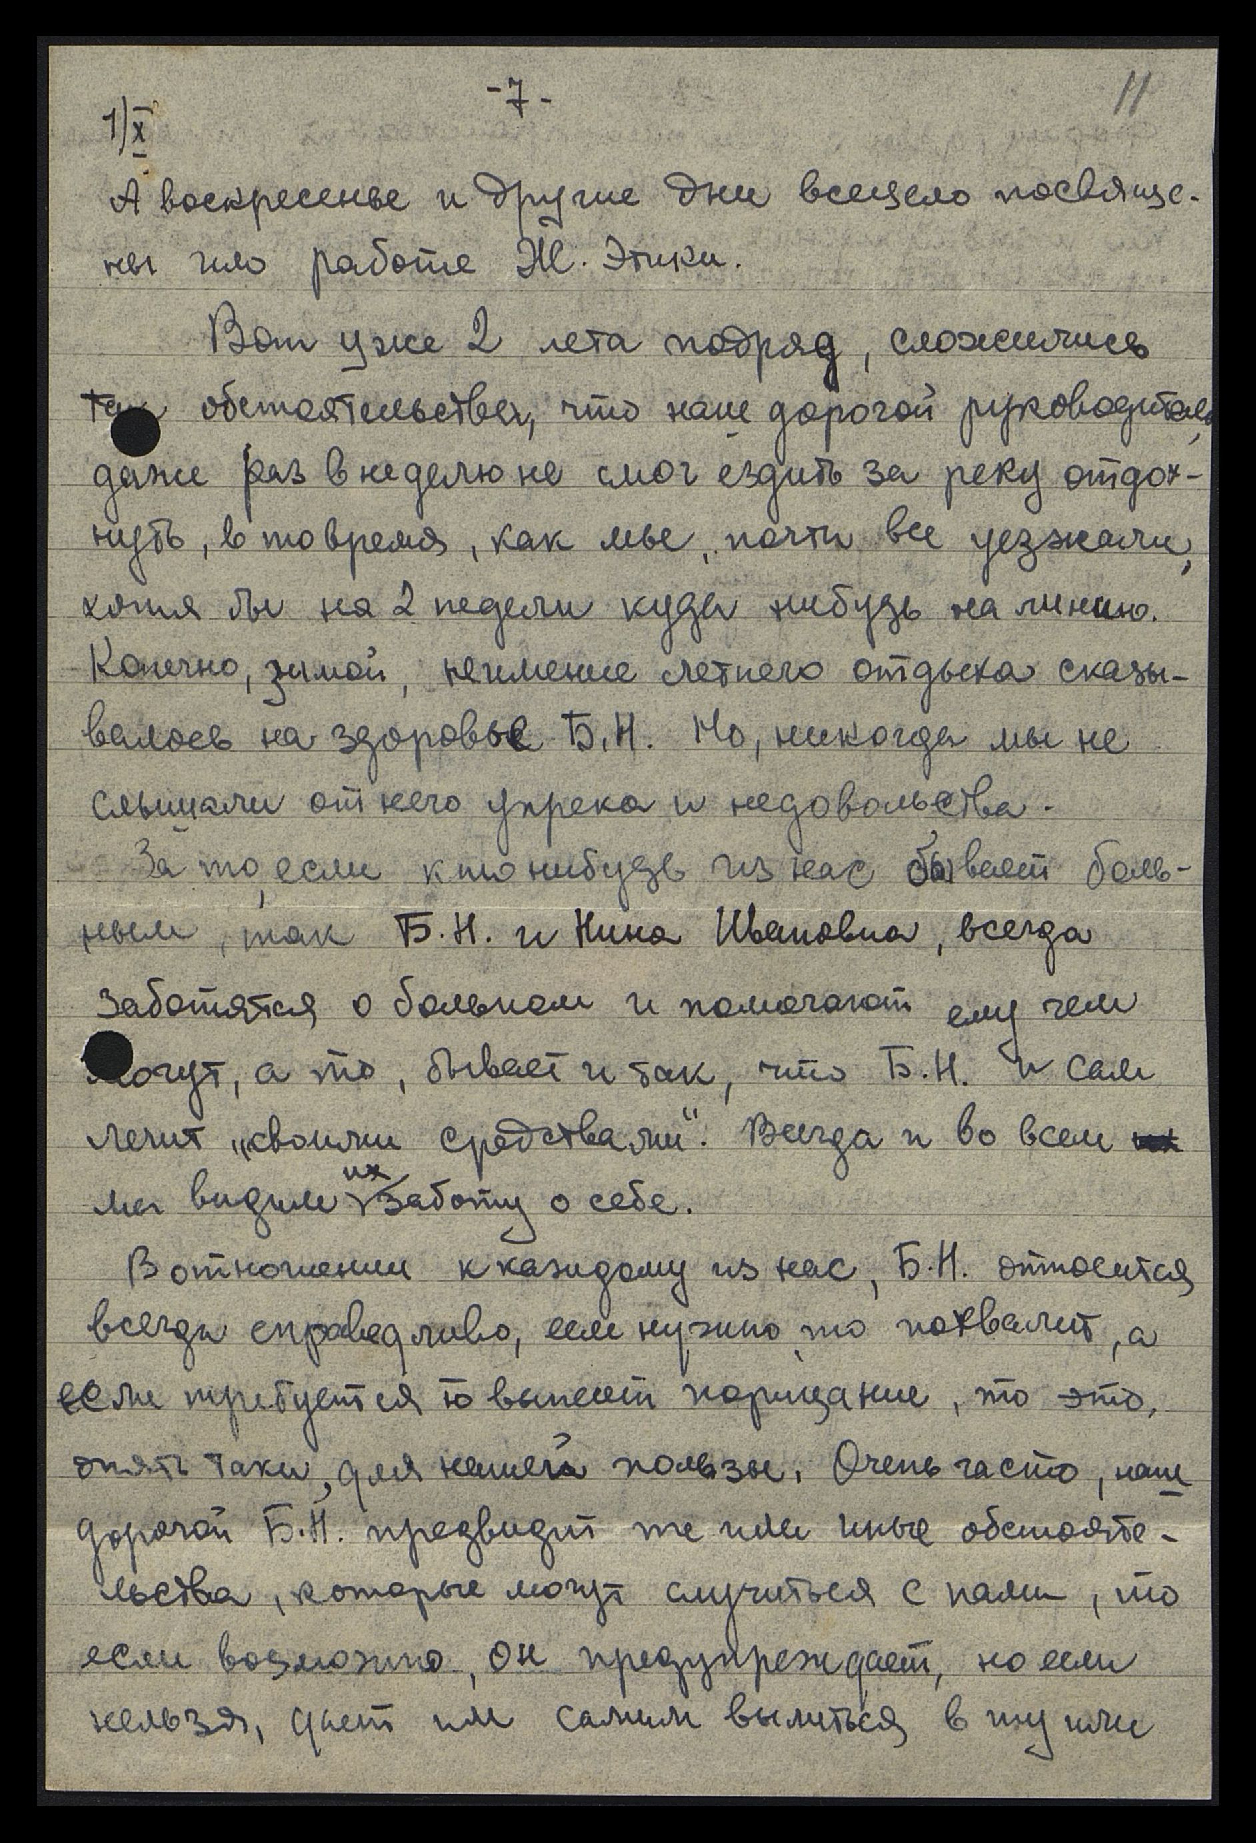 -7-
11
1)X
А воскресенье и другие дни всецело посвяще-
ны или работе Ж. Этики.
Вот уже 2 лета подряд, сложились
обстоятельства, что наш дорогой руководитель,
даже раз в неделю не смог ездить за реку отдох-
нуть, в то время, как мы, почти все уезжали,
хотя бы на 2 недели куда нибудь на линию.
Конечно, зимой, неимение летнего отдыха сказы-
валось на здоровье Б.Н. Но, никогда мы не
слышали от него упрека и недовольства.
За то, если кто нибудь из нас бывает боль-
ным, так Б.Н. и Нина Ивановна, всегда
заботятся о больном и помогают ему чем
могут, а то, бывает и так, что Б.Н. и сам
лечит „своими средствами“. Всегда и во всем
мы видим их заботу о себе.
В отношении к каждому из нас, Б.Н. относится
всегда справедливо, если нужно то похвалит, а
если требуется то вынесет порицание, то это,
опять таки, для нашей пользы. Очень часто, наш
дорогой Б.Н. предвидит те или иные обстояте-
льства, которые могут случиться с нами, то
если возможно, он предупреждает, но если
нельзя, дает им самим вылиться в ту или